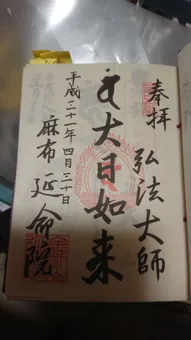 奉拝
弘法大師
大日如来
平成三十一年四月三十日
麻布
延命院